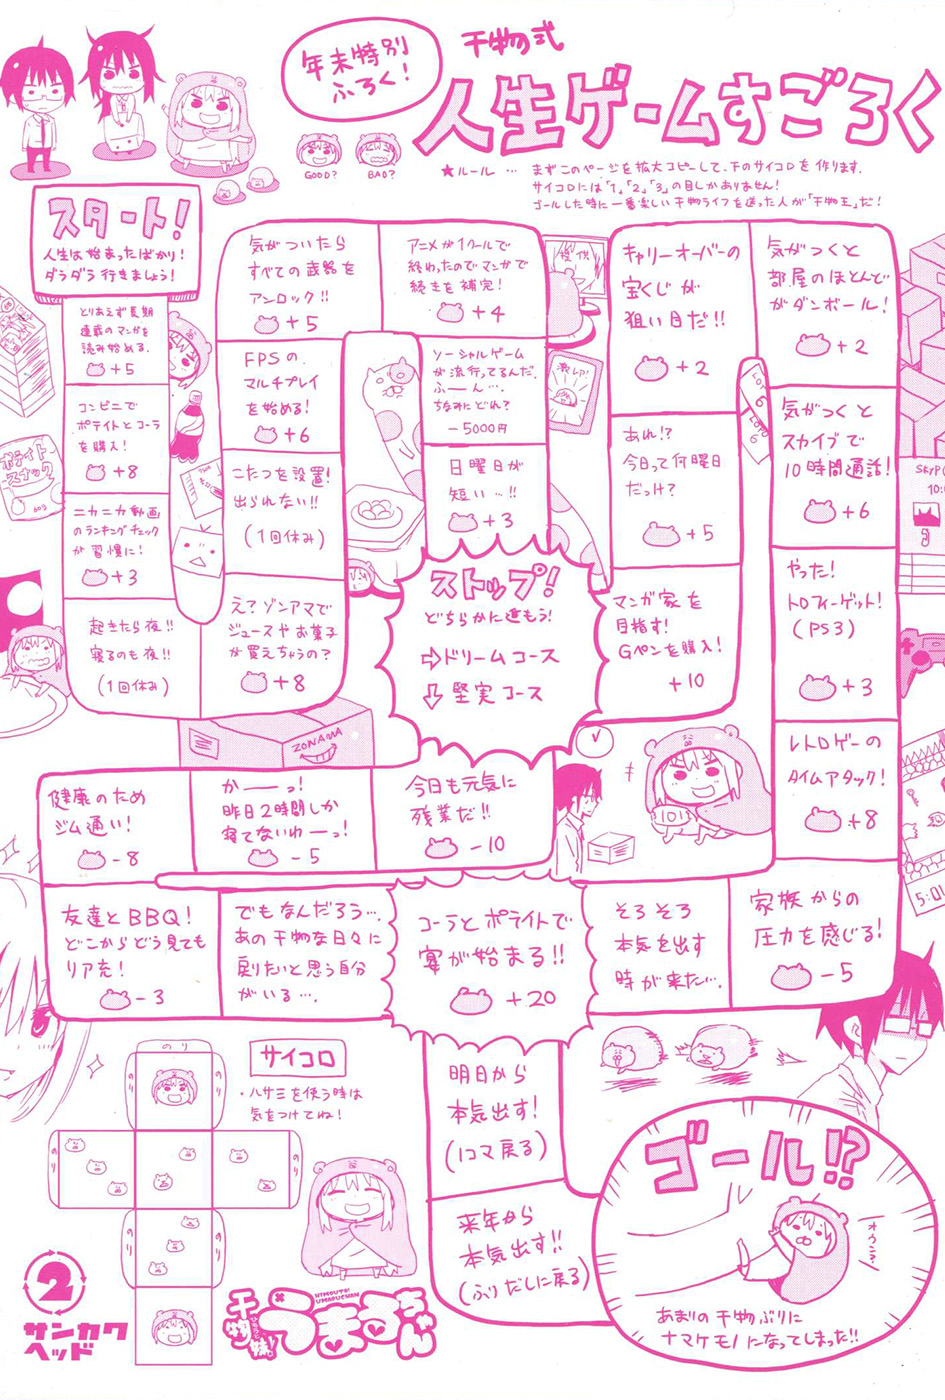 年末特別
ふろく!
干物式
人生ゲームすごろく
GOOD?
BAD?
★ルール … まずこのページを拡大コピーして、下のサイコロを作ります.
サイコロには「1」「2」「3」の目しかありません!
ゴールした時に一番楽しい干物ライフを送った人が「干物王」だ!
スタート!
人生は始まったばかり!
ダラダラ行きましょう!
とりあえず長期
連載のマンガを
読み始める.
+5
コンビニで
ポテイトとコーラ
を購入!
+8
ニカニカ動画
のランキングチェック
が習慣に!
+3
起きたら夜!!
寝るのも夜!!
(1回休み)
え?ゾンアマで
ジュースやお菓子
が買えちゃうの?
+8
こたつを設置!
出られない!!
(1回休み)
FPSの
マルチプレイ
を始める!
+6
気がついたら
すべての武器を
アンロック!!
+5
アニメが1クールで
終わったのでマンガで
続きを補完!
+4
ソーシャルゲーム
が流行ってるんだ.
ふーん….
ちなみにどれ?
-5000円
日曜日が
短い…!!
+3
ストップ!
どちらかに進もう!
⇨ドリームコース
⇩堅実コース
マンガ家を
目指す!
Gペンを購入!
+10
あれ!?
今日って何曜日
だっけ?
+5
キャリーオーバーの
宝くじが
狙い目だ!!
+2
気がつくと
部屋のほとんど
がダンボール!
+2
気がつくと
スカイプで
10時間通話!
+6
やった!
トロフィーゲット!
(PS3)
+3
レトロゲーの
タイムアタック!
+8
家族からの
圧力を感じる!
-5
そろそろ
本気を出す
時が来た….
今日も元気に
残業だ!!
-10
かーーっ!
昨日2時間しか
寝てないわーっ!
-5
健康のため
ジム通い!
-8
友達とBBQ!
どこからどう見ても
リア充!
-3
でもなんだろう…,
あの干物な日々に
戻りたいと思う自分
がいる….
コーラとポテイトで
宴が始まる!!
+20
明日から
本気出す!
(1コマ戻る)
来年から
本気出す!!
(ふりだしに戻る)
ゴール!?
あまりの干物ぶりに
ナマケモノになってしまった!!
ポテイト
スナック
60g
ZONAMA
LOTO
6
LOTO
6
SKYP
10:
5:01
サイコロ
・ハサミを使う時は
気をつけてね!
のり
のり
のり
のり
のり
のり
2
サンカク
ヘッド
HIMOUTO!
UMARUCHAN
干物妹!
うまるちゃん